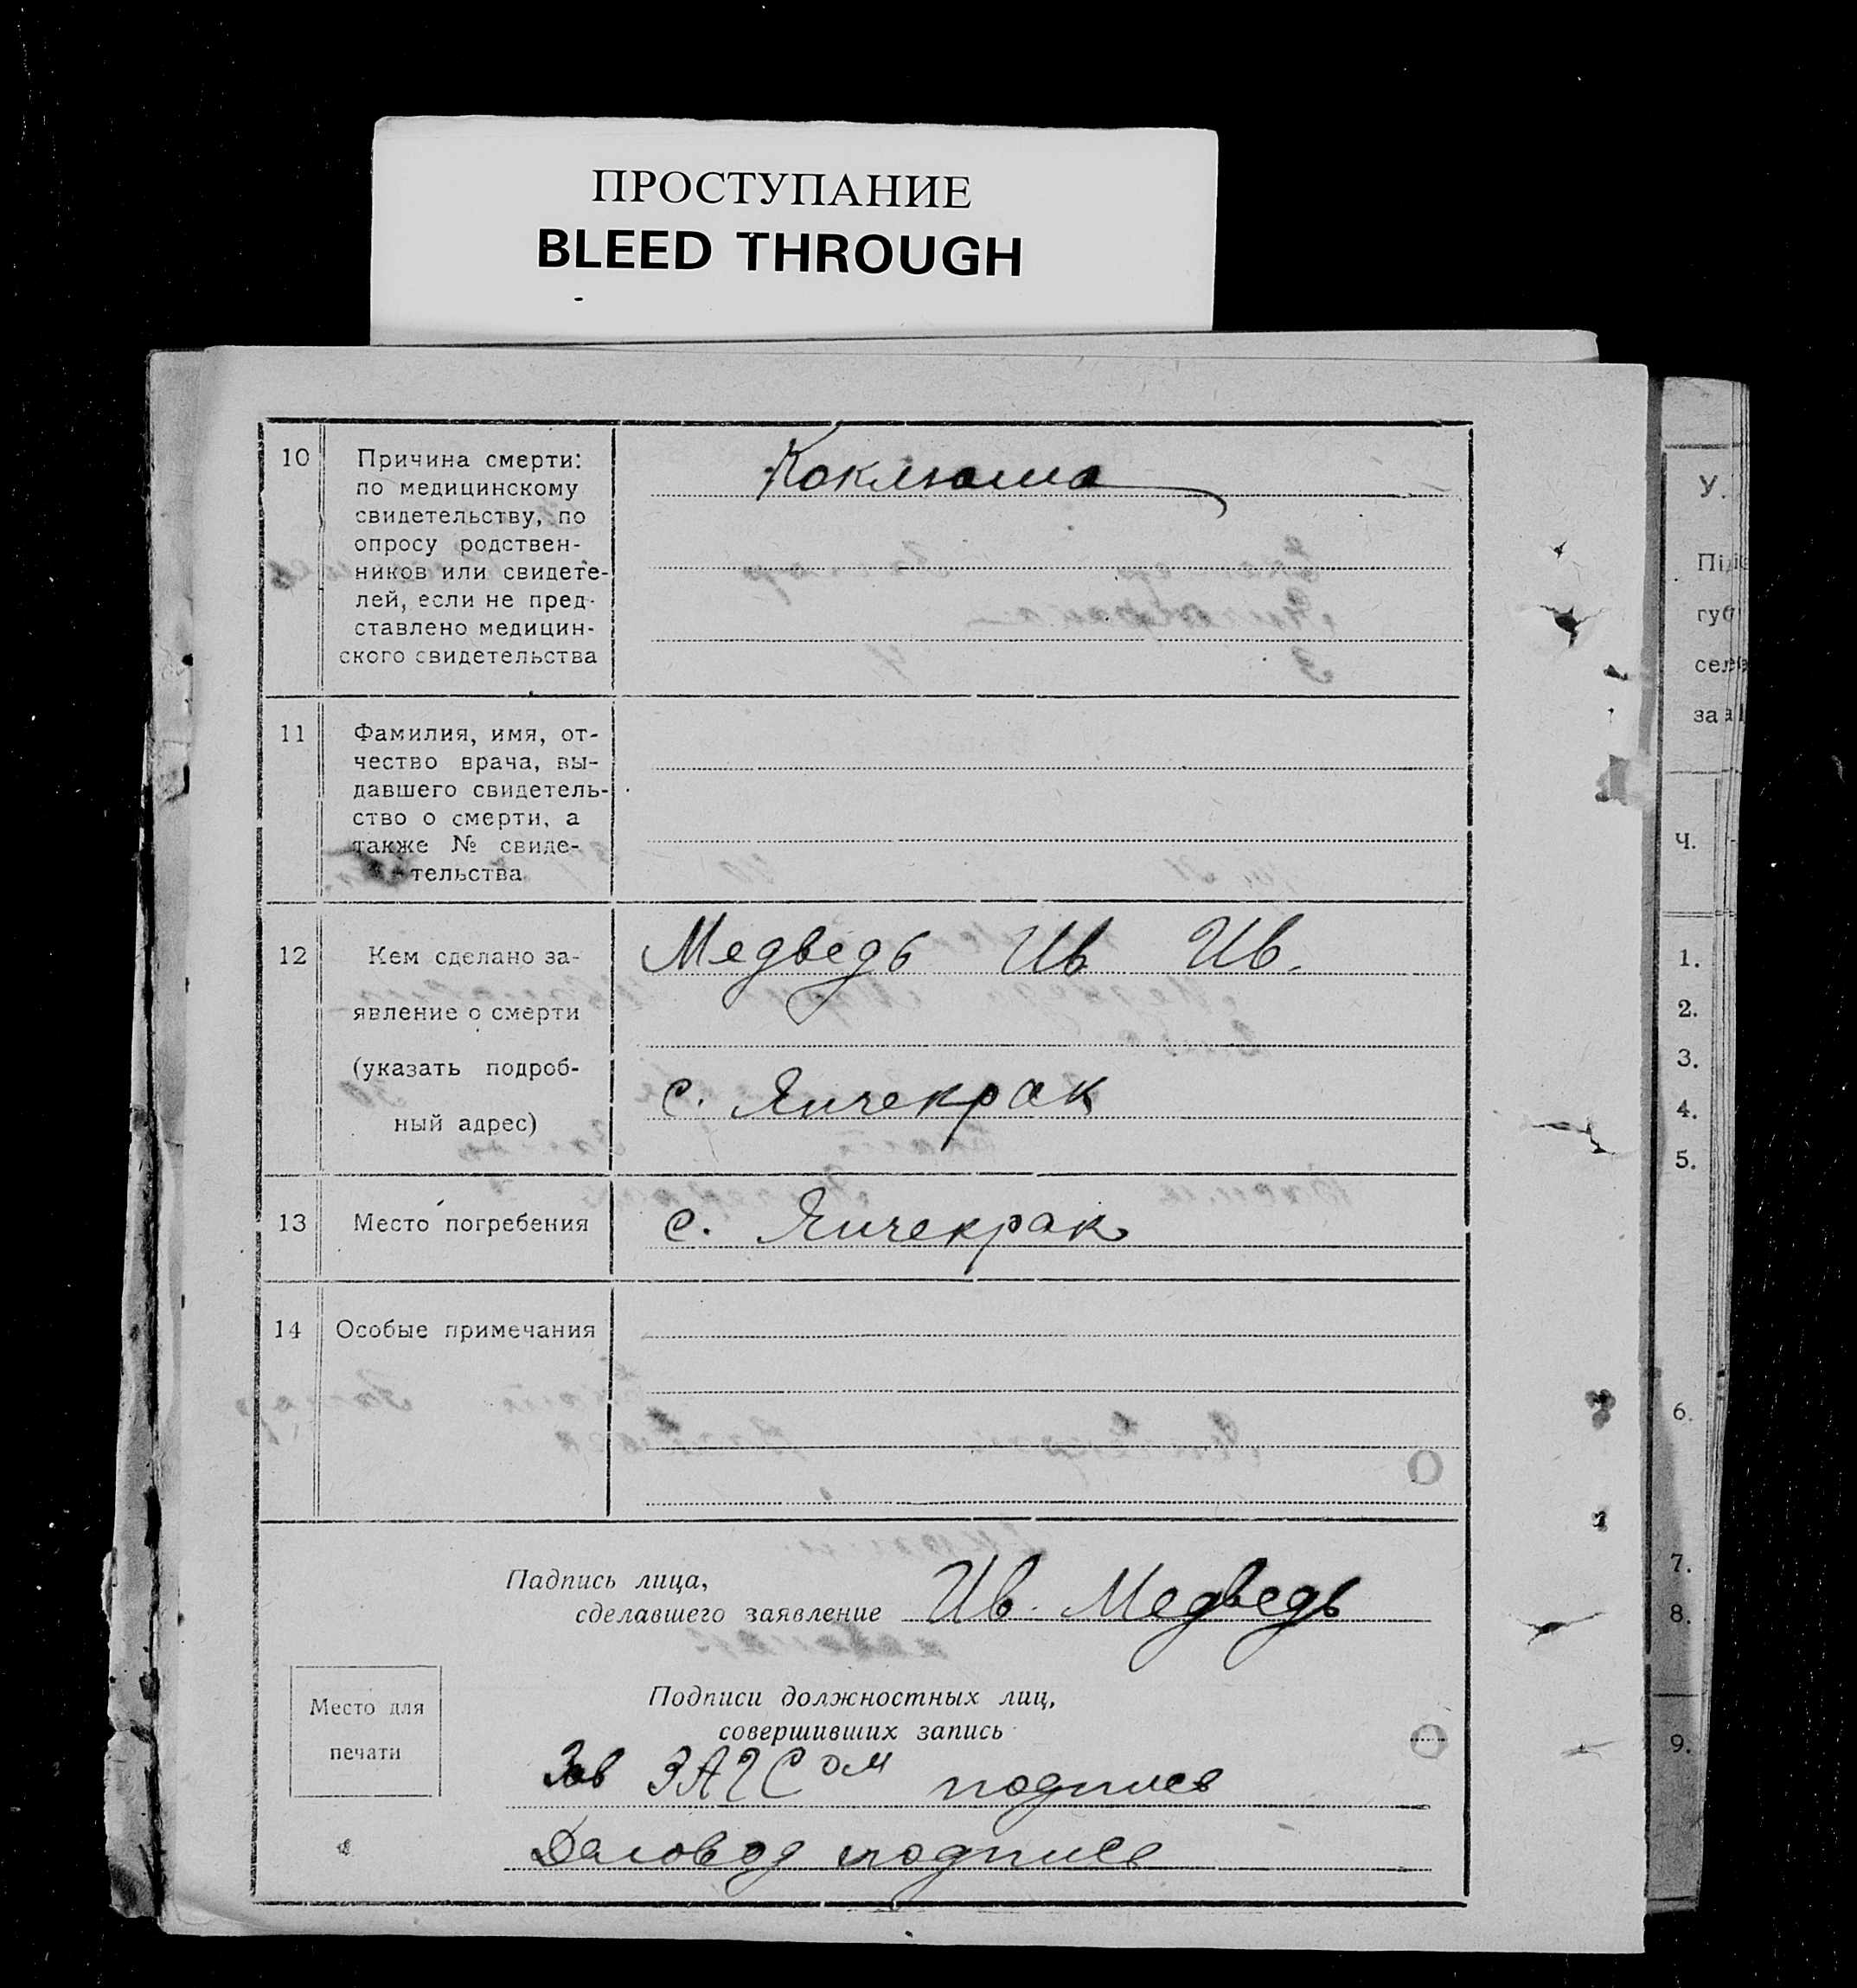 ПРОСТУПАНИЕ
BLEED THROUGH
10
Причина смерти:
по медицинскому
свидетельству, по
опросу родствен-
ников или свидете-
лей, если не пред-
ставлено медицин-
ского свидетельства
Коклюша
11
Фамилия, имя, от-
чество врача, вы-
давшего свидетель-
ство о смерти, а
также № свиде-
тельства
12
Кем сделано за-
явление о смерти
(указать подроб-
ный адрес)
Медведь Ив Ив.
с. Янчекрак
13
Место погребения
с. Янчекрак
14
Особые примечания
Падпись лица,
сделавшего заявление Ив. Медведь
Место для
печати
Подписи должностных лиц,
совершивших запись
Зав ЗАГСом подпись
Деловод подпись
У.
губ
селе
за
Ч.
1.
2.
3.
4.
5.
6.
7.
8.
9.